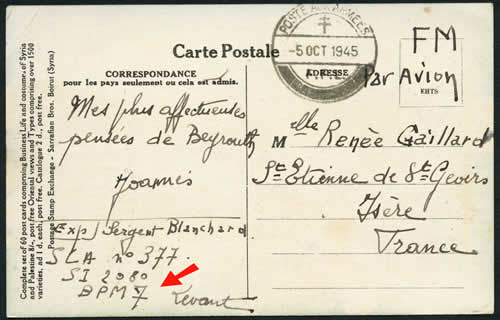 Complete set of 60 post cards comprising Business Life and costumes of Syria
and Palestine 8/-, post free Oriental views and Types comprising over 1500
varieties, ad 1 d. each; post free. Catalogue 2 d., post free.
Postage Stamp Exchange - Sarrafian Bros. Beirut (Syria)
POSTE AUX ARMÉES
-5 OCT 1945
Carte Postale
CORRESPONDANCE
pour les pays seulement ou cela est admis.
ADRESSE
FM
Par Avion
KHTS
Mes plus affectueuses
pensées de Beyrouth
Joannès
Exp/ Sergent Blanchard
SLA nº 377
SI 2080
BPM 7
Levant
Melle Renée Gaillard
St Etienne de St Geoirs
Isère
France